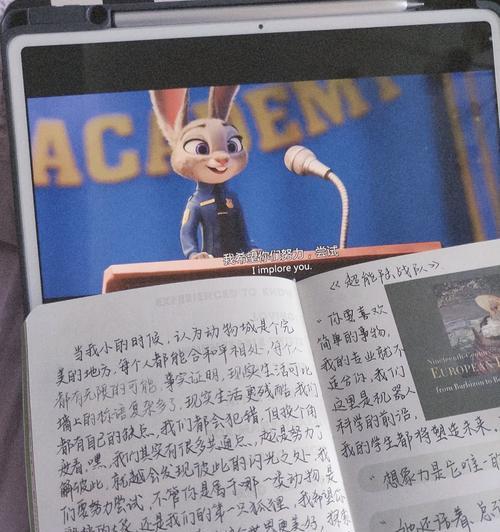 ACADEMY
我希望你们努力，尝试
I implore you.
EXPERIENCED TO KNOW
当我小的时候，认为动物城是个完
美的地方，每个人都能会和平相处，每个人
都有无限的可能，事实证明，现实生活可比
墙上的标语复杂多了，现实生活更残酷，我们
都有自己的缺点，我们都会犯错，但换个角
度看，嘿，我们其实有很多共通点，越是努力了
解彼此，就越会发现彼此的闪光之处，我
们要努力尝试，不管你是属于哪一类动物，是
还是我们的第一只狐狸，我希望你
《超能陆战队》
“你要喜欢
简单的事物，
我的专业就不
适合你，我们
这里是机器人
科学的前沿，
我的学生都将塑造未来。
Nineteenth-Century
EUROPEAN
from Barbizon to
“想象力是它唯一的